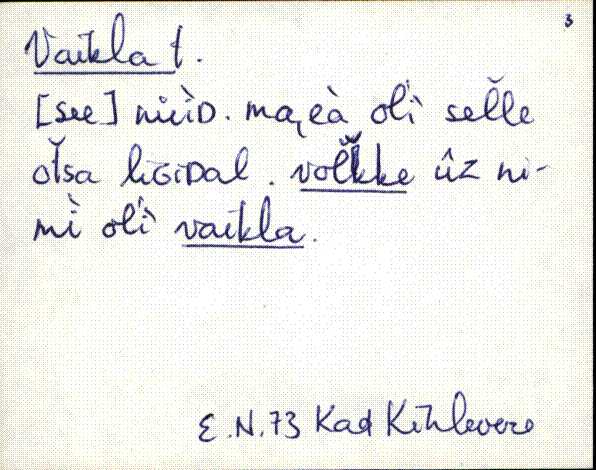 3
Vaikla t.
[see] niiD. olì selle
otsa kòiDal. volkke ûz ni-
mì olì vaikla.
E.N.73 Kad Kihlevere